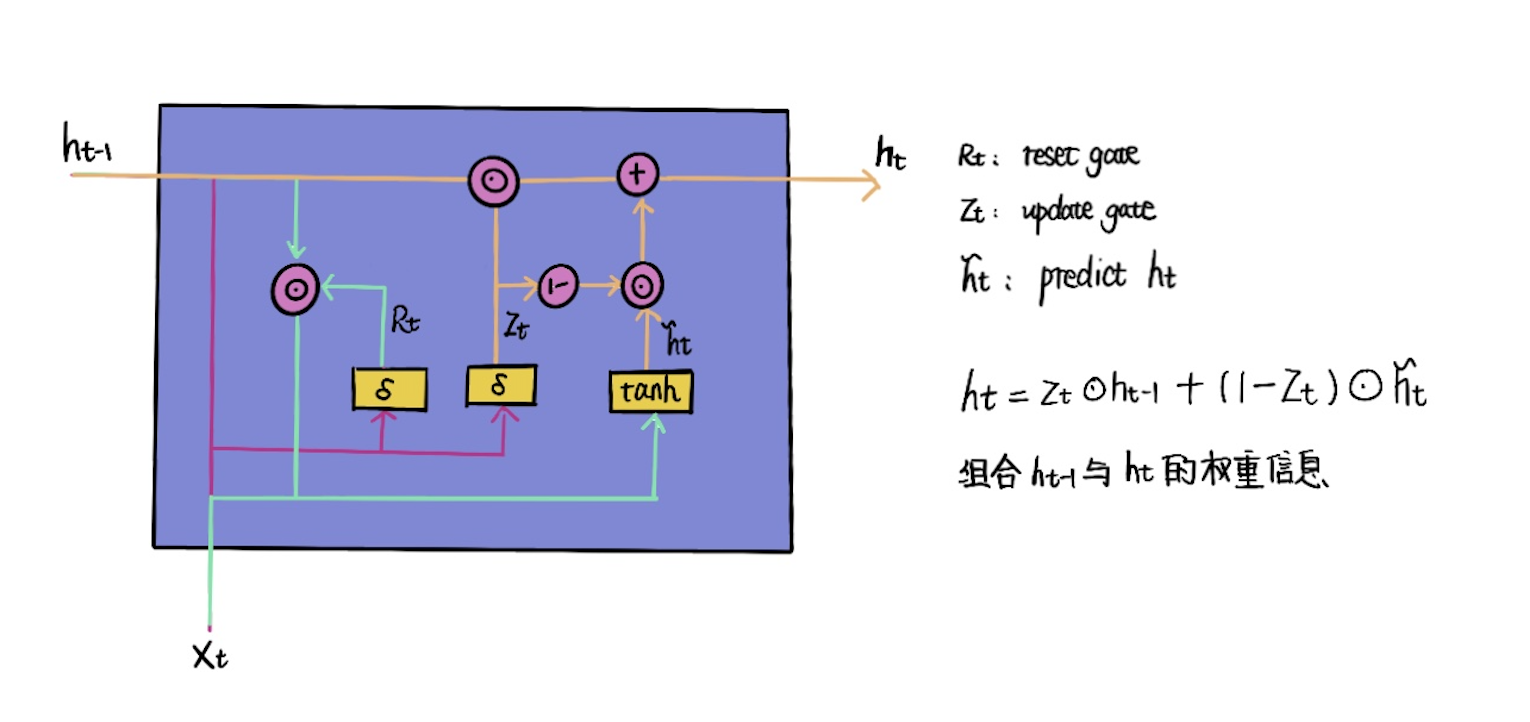 ht-1
ht
Rt
Zt
h̃t
δ
δ
tanh
Xt
Rt: reset gate
Zt: update gate
h̃t: predict ht
ht = Zt ⊙ ht-1 + (1-Zt) ⊙ h̃t
组合 ht-1 与 ht 的权重信息
1-
+